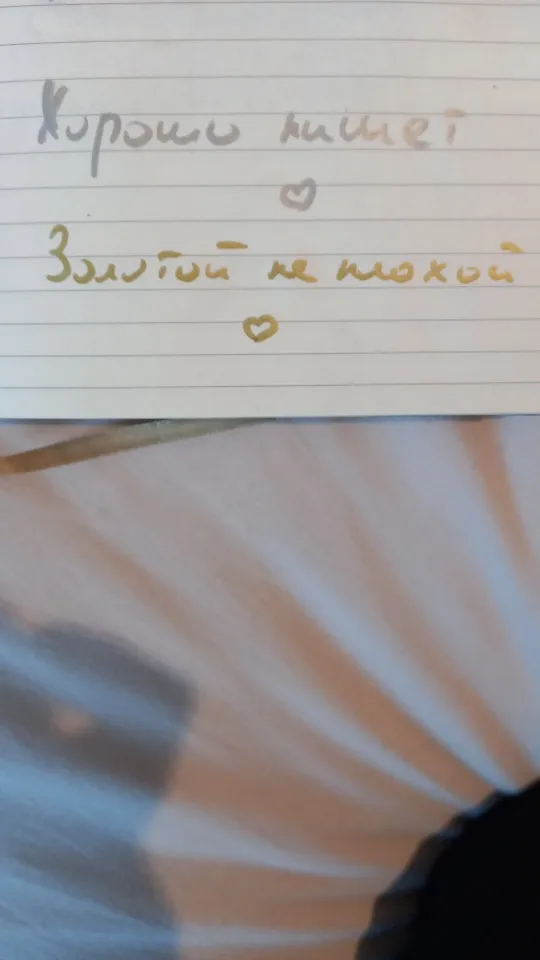 Хорошо пишет
Золотой не плохой